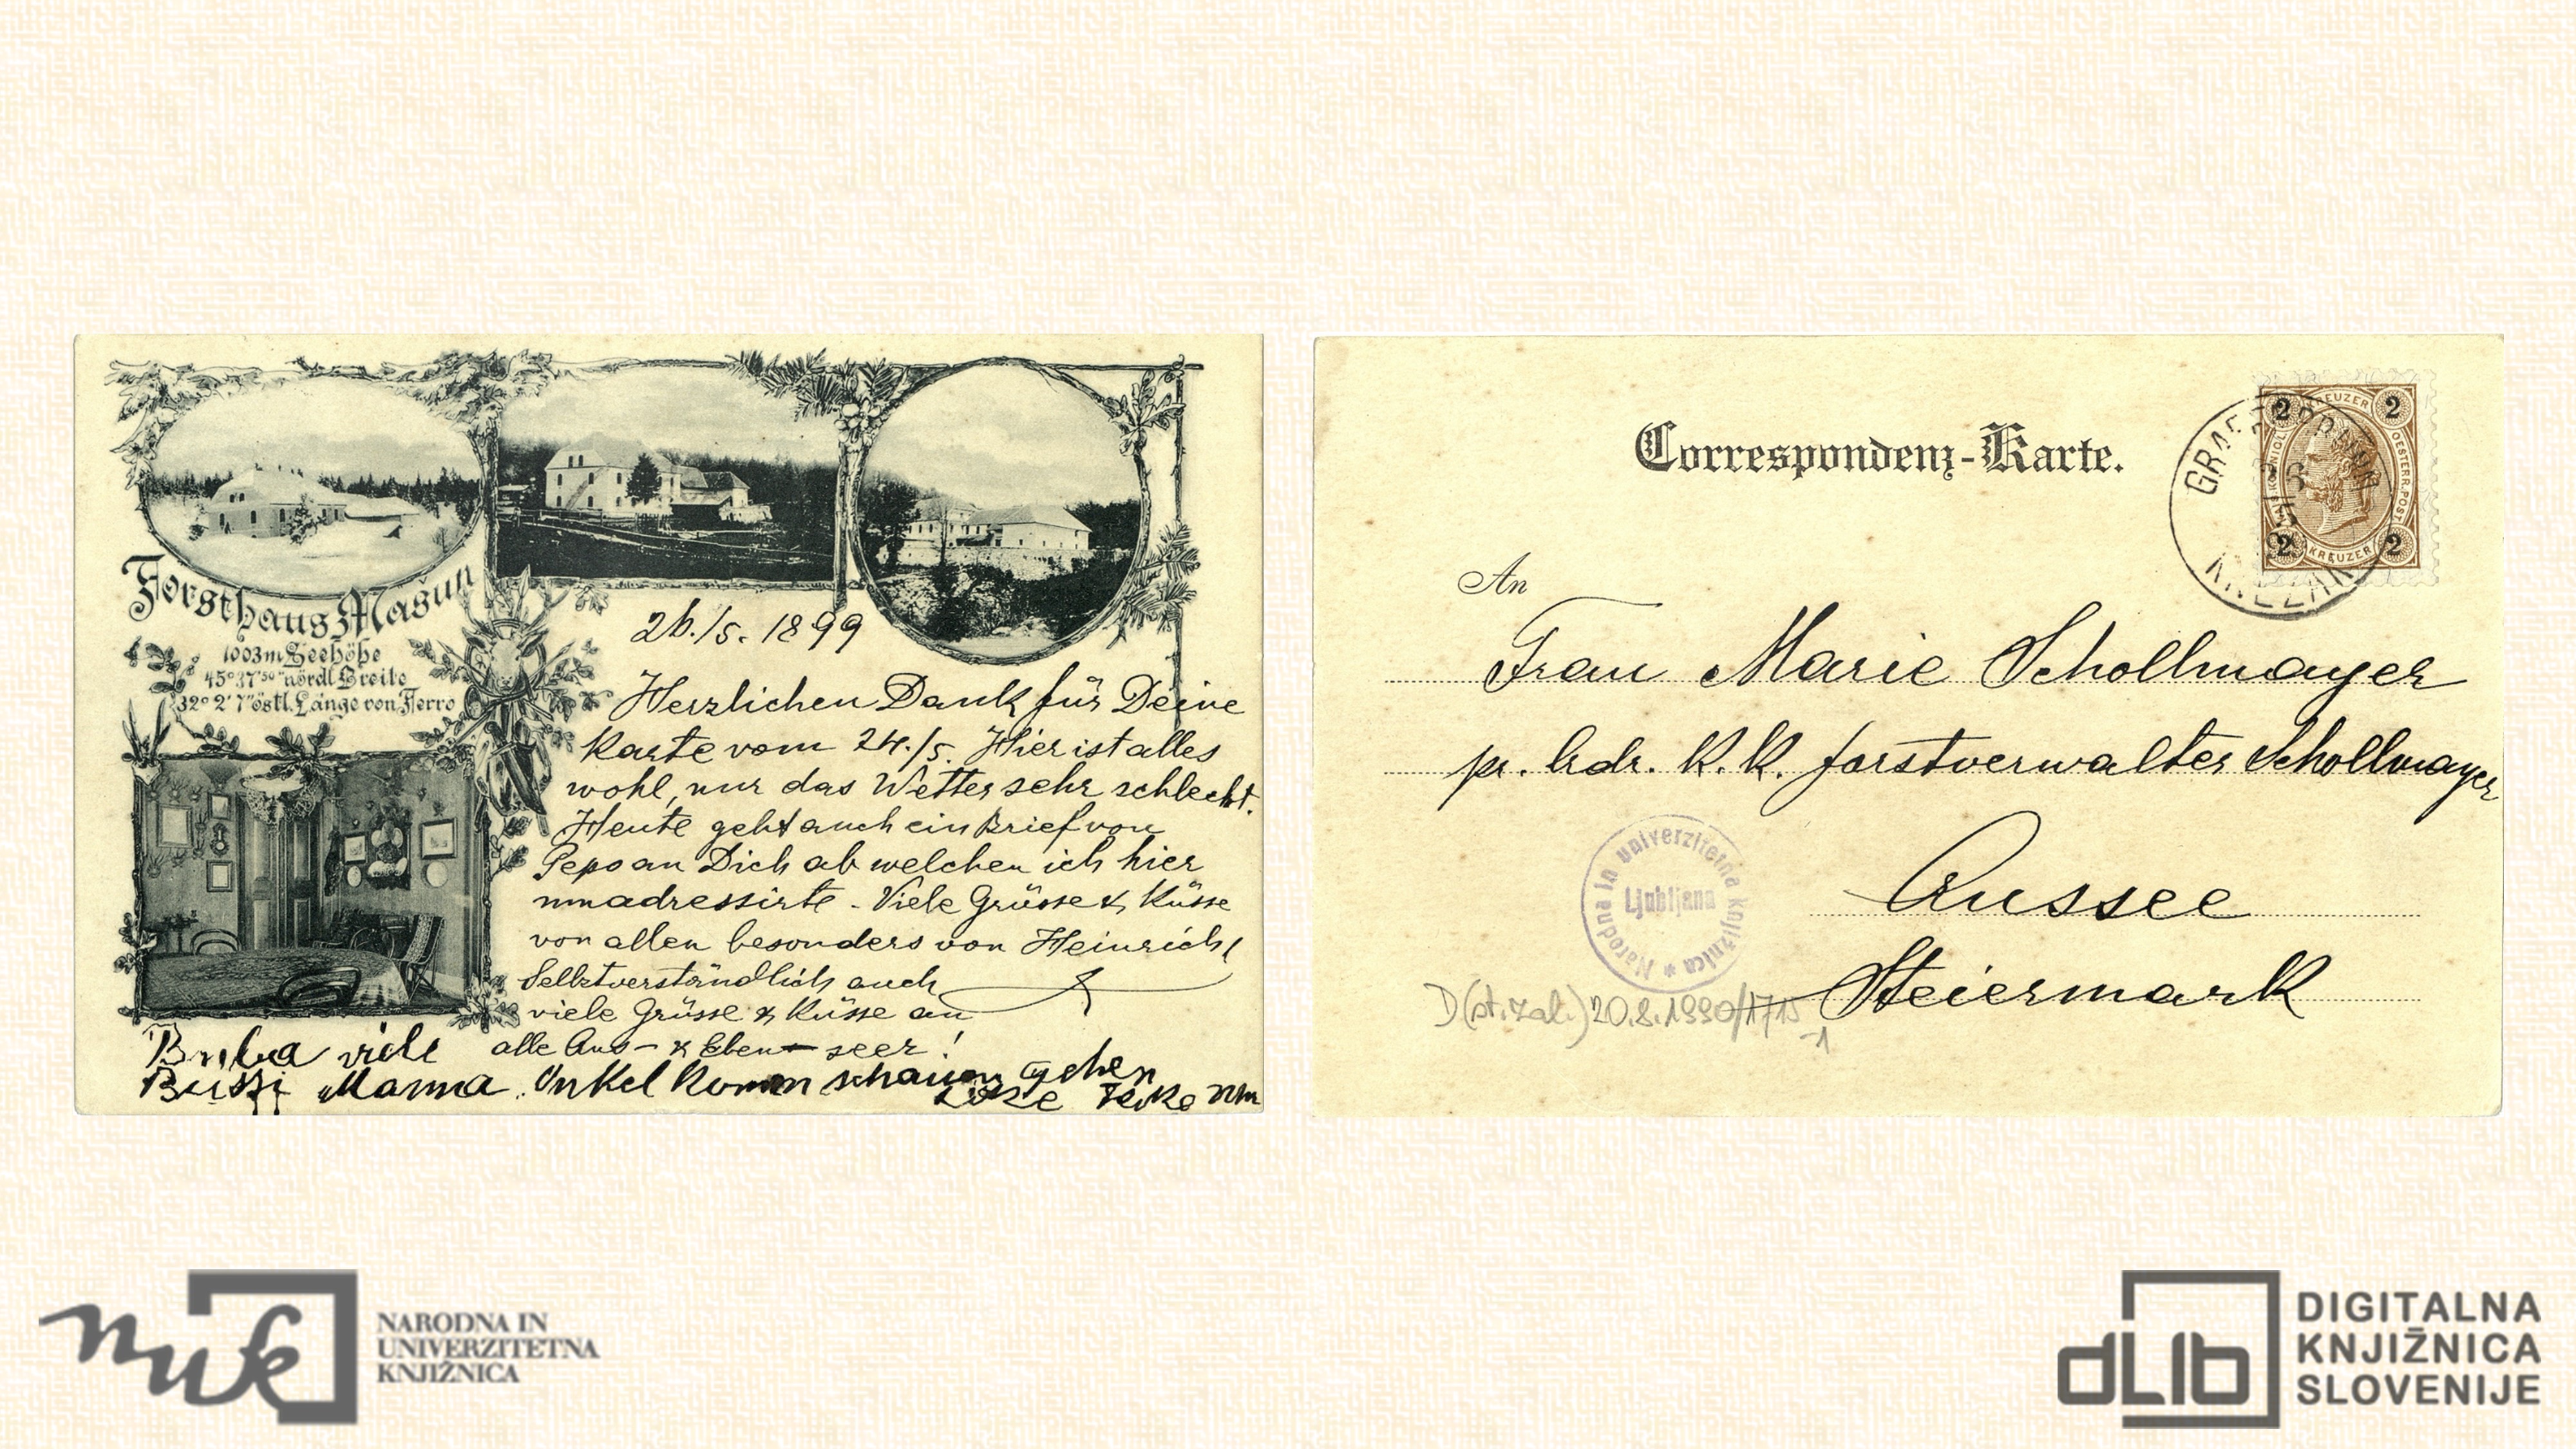 Forsthaus Mašun
1003 m Seehöhe
45° 37' 50" nördl. Breite
32° 2' 7" östl. Länge von Ferro
26./5. 1899
Herzlichen Dank für Deine
Karte vom 24./5. Hier ist alles
wohl, nur das Wetter sehr schlecht.
Heute geht auch ein Brief von
Pepo an Dich ab welchen ich hier
umadressirte. Viele Grüsse & Küsse
von allen besonders von Heinrich,
Selbstverständlich auch
viele Grüsse & Küsse an
alle Aus- & Eben-seer!
Buba viele
Bussi Mama. Onkel komm schauen gehen
Correspondenz-Karte.
2 KREUZER 2
2 KREUZER 2
An
Frau Marie Schollmayer
pr. Adr. K. K. Forstverwalter Schollmayer
Aussee
Steiermark
Narodna in univerzitetna knjižnica *
Ljubljana
D(st. zal.) 20.8.1990/1715
-1
nuk
NARODNA IN
UNIVERZITETNA
KNJIŽNICA
dLib
DIGITALNA
KNJIŽNICA
SLOVENIJE